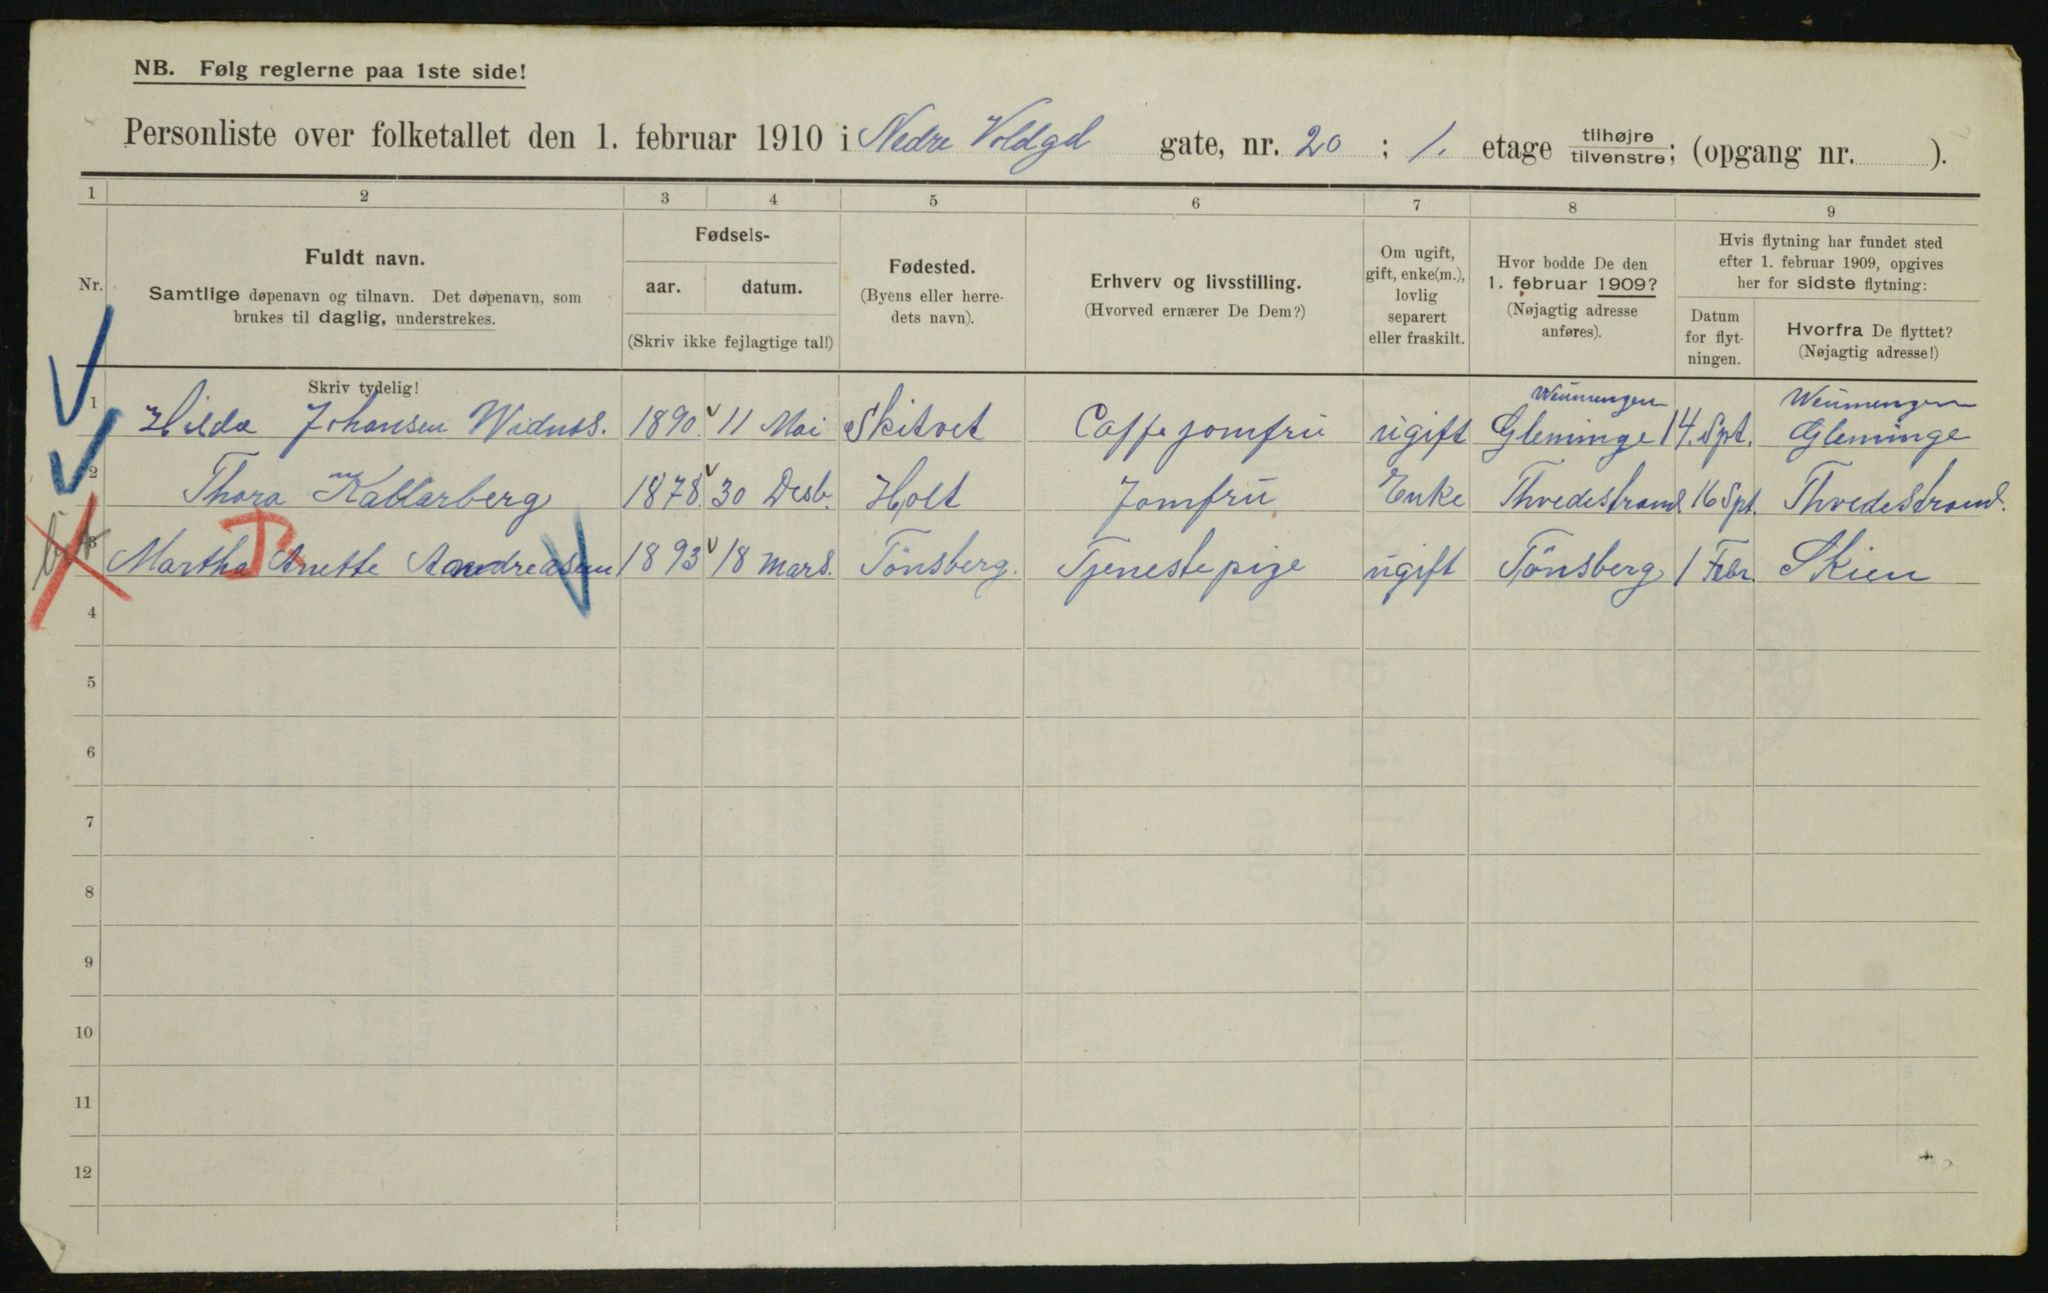 NB. Følg reglerne paa 1ste side!
Personliste over folketallet den 1. februar 1910 i Nedre Voldgd gate, nr. 20 ; 1. etage tilhøjre/tilvenstre; (opgang nr. ).
1 2 3 4 5 6 7 8 9
Nr.
Fuldt navn.
Samtlige døpenavn og tilnavn. Det døpenavn, som
brukes til daglig, understrekes.
Skriv tydelig!
Fødsels-
aar. datum.
(Skriv ikke fejlagtige tal!)
Fødested.
(Byens eller herre-
dets navn).
Erhverv og livsstilling.
(Hvorved ernærer De Dem?)
Om ugift,
gift, enke(m.),
lovlig
separert
eller fraskilt.
Hvor bodde De den
1. februar 1909?
(Nøjagtig adresse
anføres).
Hvis flytning har fundet sted
efter 1. februar 1909, opgives
her for sidste flytning:
Datum
for flyt-
ningen.
Hvorfra De flyttet?
(Nøjagtig adresse!)
1 Hilda Johansen 1890 11 Mai Skitvet Caffejomfru ugift Gleminge 14. Spt. Gleminge
2 Thora 1878 30 Desb. Holt Jomfru Enke Thvedestrand 16 Spt. Thvedestrand.
3 Martha Anette Aandreasen 1893 18 Mars. Tönsberg. Tjenestepige ugift Tönsberg 1 Febr. Skien
4
5
6
7
8
9
10
11
12